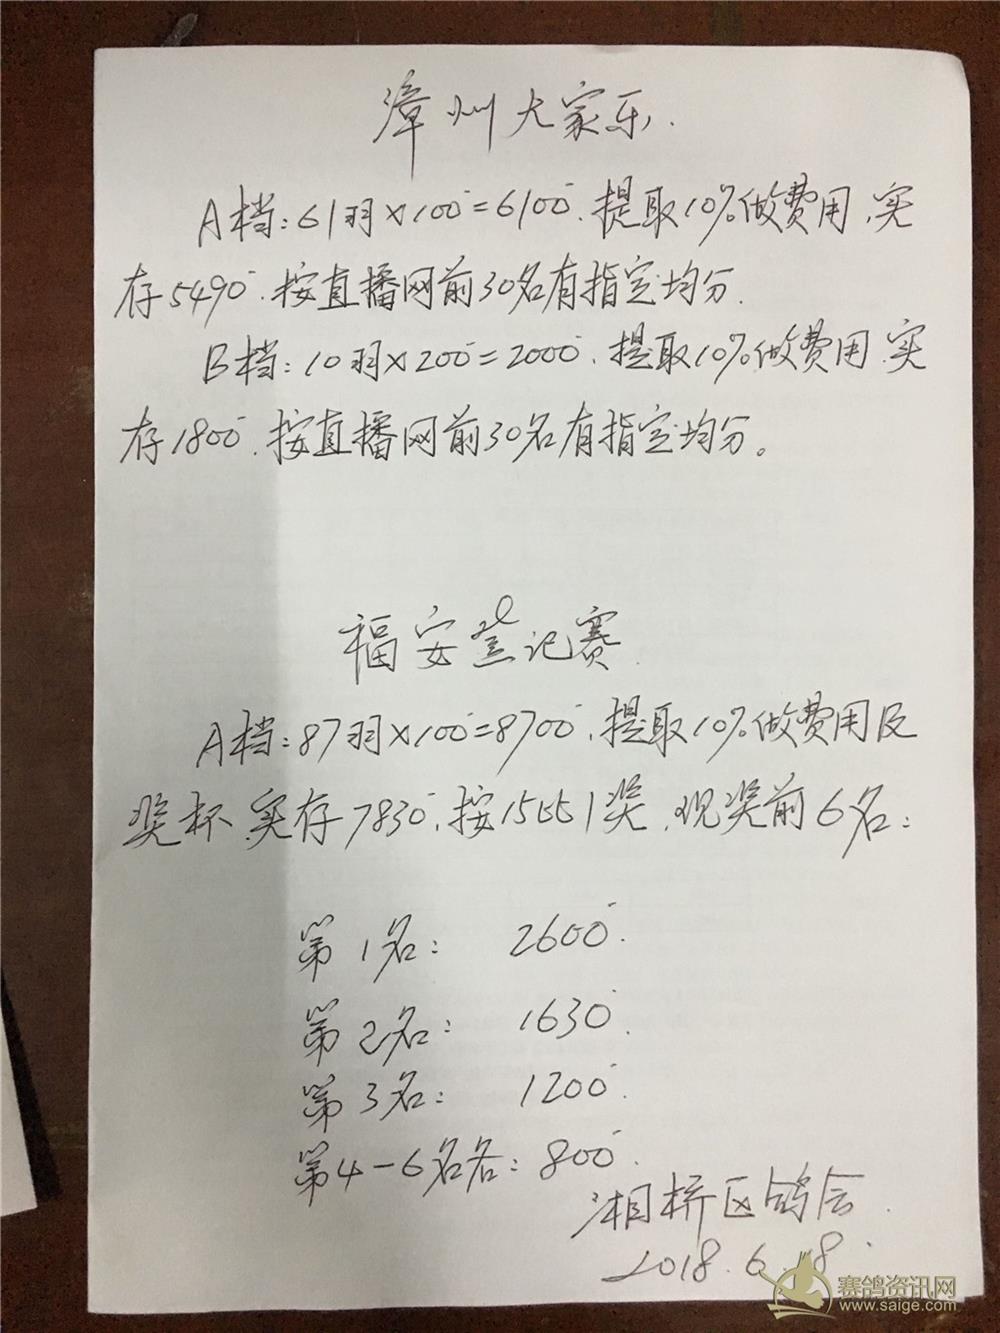 漳州大家乐.
A档:61羽×100=6100.提取10%做费用,实
存5490.按直播网前30名有指定均分.
B档:10羽×200=2000.提取10%做费用.实
存1800.按直播网前30名有指定均分。
福安登记赛.
A档:87羽×100=8700.提取10%做费用及
奖杯.实存7830.按15取1奖.现奖前6名:
第1名: 2600.
第2名: 1630.
第3名: 1200.
第4-6名各:800.
湘桥区鸽会.
2018.6.18.
赛鸽资讯网
www.saige.com